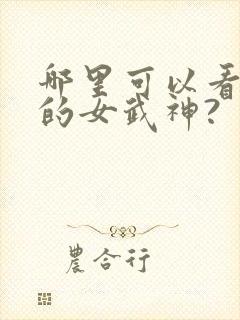 哪里可以看
的女武神?
農合行